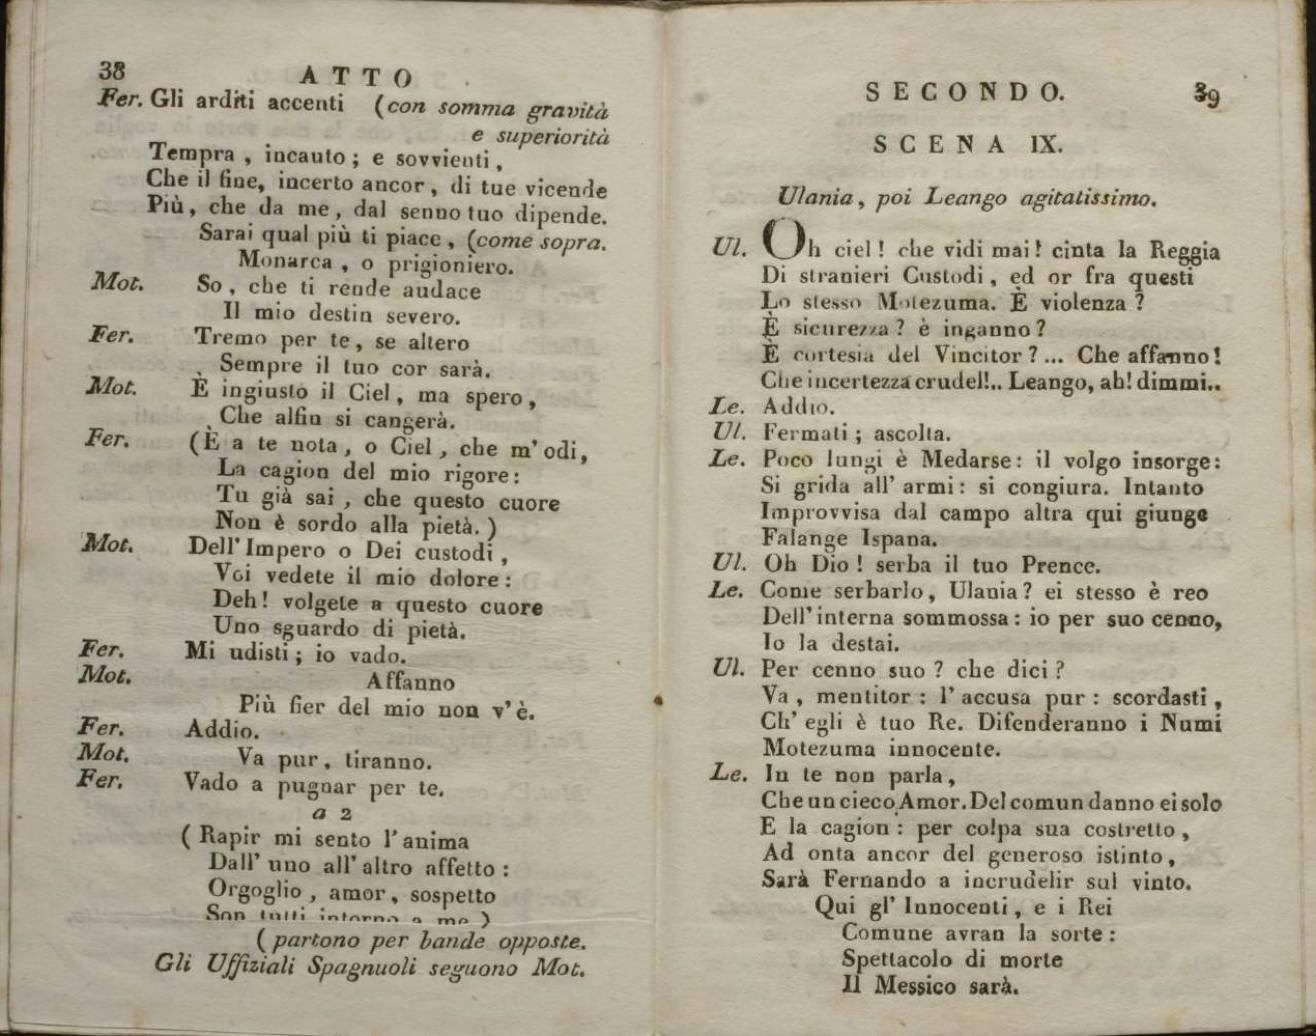 38
ATTO
Fer. Gli arditi accenti (con somma gravità
e superiorità
Tempra, incauto; e sovvienti,
Che il fine, incerto ancor, di tue vicende
Più, che da me, dal senno tuo dipende.
Sarai qual più ti piace, (come sopra.
Monarca, o prigioniero.
Mot. So, che ti rende audace
Il mio destin severo.
Fer. Tremo per te, se altero
Sempre il tuo cor sarà.
Mot. È ingiusto il Ciel, ma spero,
Che alfin si cangerà.
Fer. (È a te nota, o Ciel, che m'odi,
La cagion del mio rigore:
Tu già sai, che questo cuore
Non è sordo alla pietà.)
Mot. Dell'Impero o Dei custodi,
Voi vedete il mio dolore:
Deh! volgete a questo cuore
Uno sguardo di pietà.
Fer. Mi udisti; io vado.
Mot. Affanno
Più fier del mio non v'è.
Fer. Addio.
Mot. Va pur, tiranno.
Fer. Vado a pugnar per te.
a 2
( Rapir mi sento l'anima
Dall' uno all' altro affetto:
Orgoglio, amor, sospetto
Son tutti intorno a me)
( partono per bande opposte.
Gli Uffiziali Spagnuoli seguono Mot.
SECONDO.
39
SCENA IX.
Ulania, poi Leango agitatissimo.
Ul. Oh ciel! che vidi mai! cinta la Reggia
Di stranieri Custodi, ed or fra questi
Lo stesso Motezuma. È violenza?
È sicurezza? è inganno?
È cortesia del Vincitor?... Che affanno!
Che incertezza crudel!.. Leango, ah! dimmi..
Le. Addio.
Ul. Fermati; ascolta.
Le. Poco lungi è Medarse: il volgo insorge:
Si grida all' armi: si congiura. Intanto
Improvvisa dal campo altra qui giunge
Falange Ispana.
Ul. Oh Dio! serba il tuo Prence.
Le. Come serbarlo, Ulania? ei stesso è reo
Dell'interna sommossa: io per suo cenno,
Io la destai.
Ul. Per cenno suo? che dici?
Va, mentitor: l'accusa pur: scordasti,
Ch' egli è tuo Re. Difenderanno i Numi
Motezuma innocente.
Le. In te non parla,
Che un cieco Amor. Del comun danno ei solo
E la cagion: per colpa sua costretto,
Ad onta ancor del generoso istinto,
Sarà Fernando a incrudelir sul vinto.
Qui gl' Innocenti, e i Rei
Comune avran la sorte:
Spettacolo di morte
Il Messico sarà.